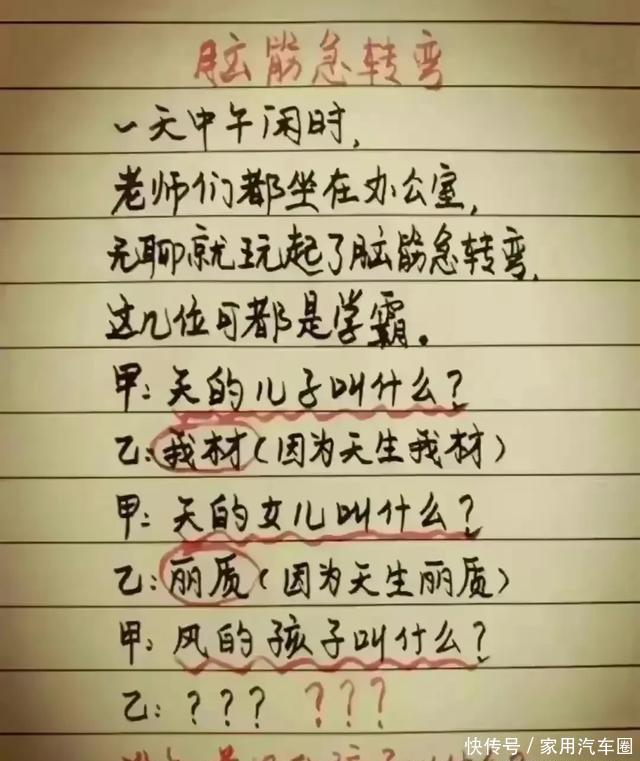 脑筋急转弯
一天中午闲时,
老师们都坐在办公室,
无聊就玩起了脑筋急转弯,
这几位可都是学霸。
甲:天的儿子叫什么?
乙:我材(因为天生我材)
甲:天的女儿叫什么?
乙:丽质(因为天生丽质)
甲:风的孩子叫什么?
乙:??? ???
快传号/家用汽车圈